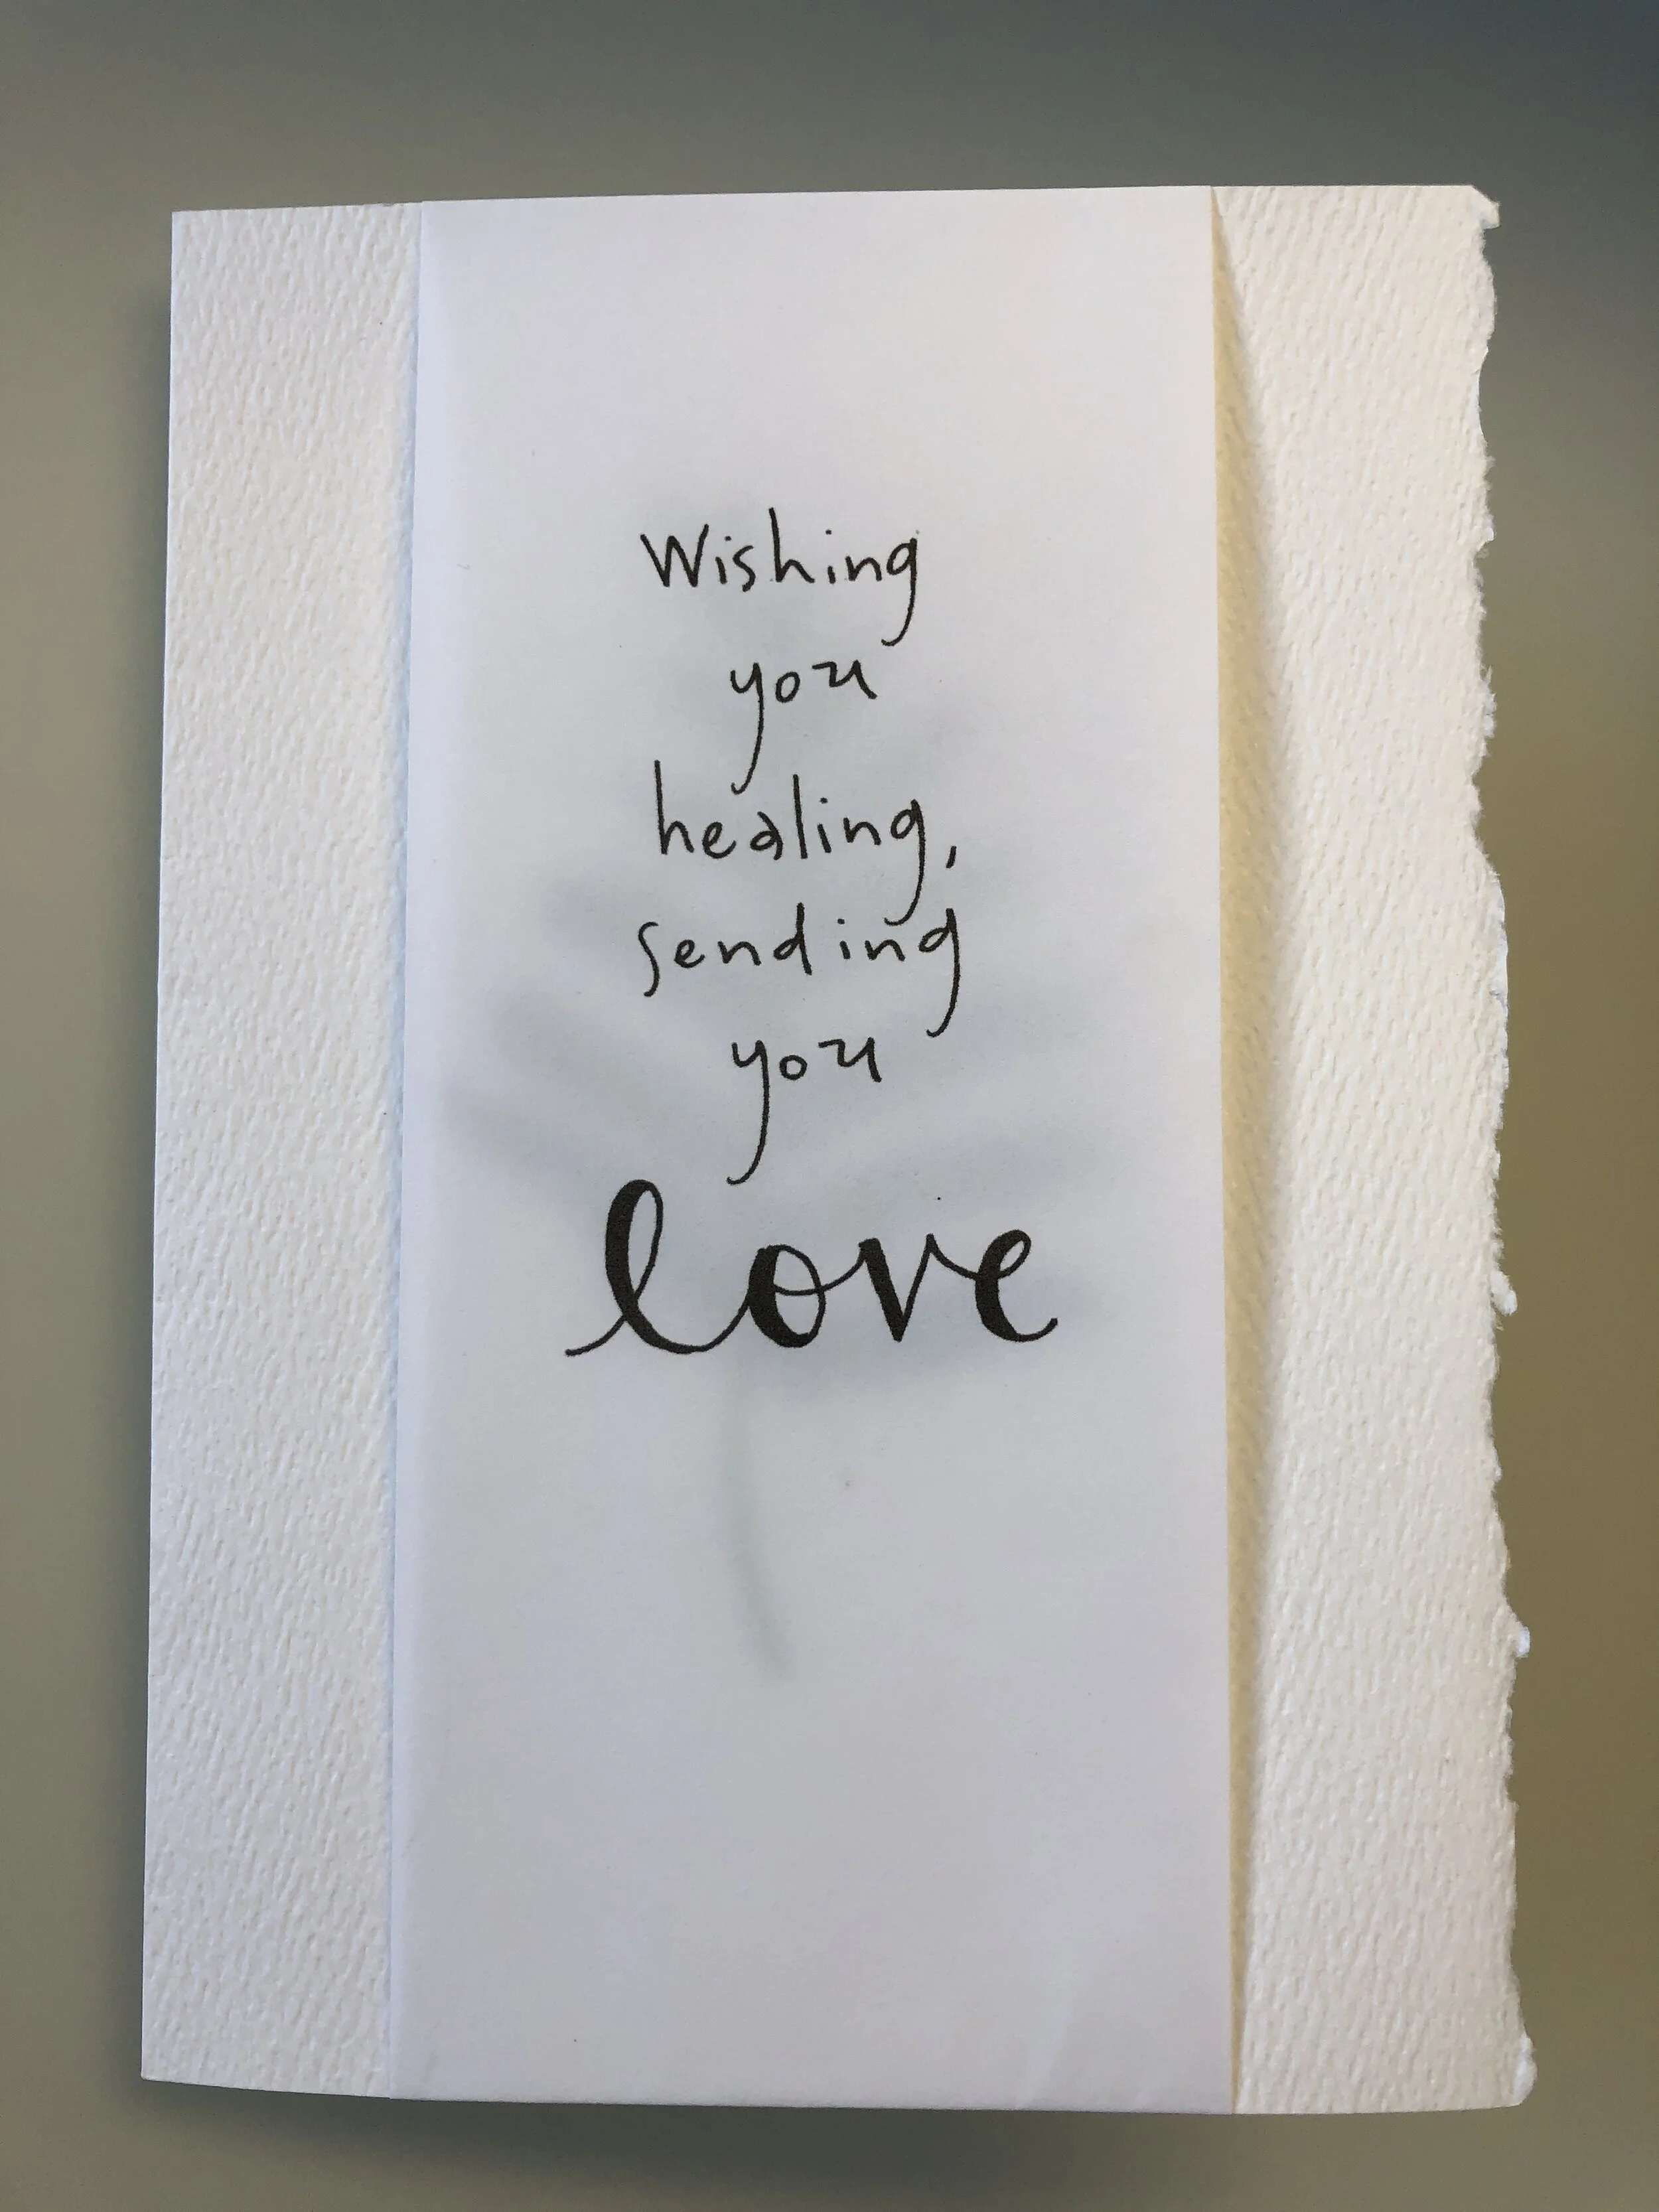 Wishing
you
healing,
sending
you
love